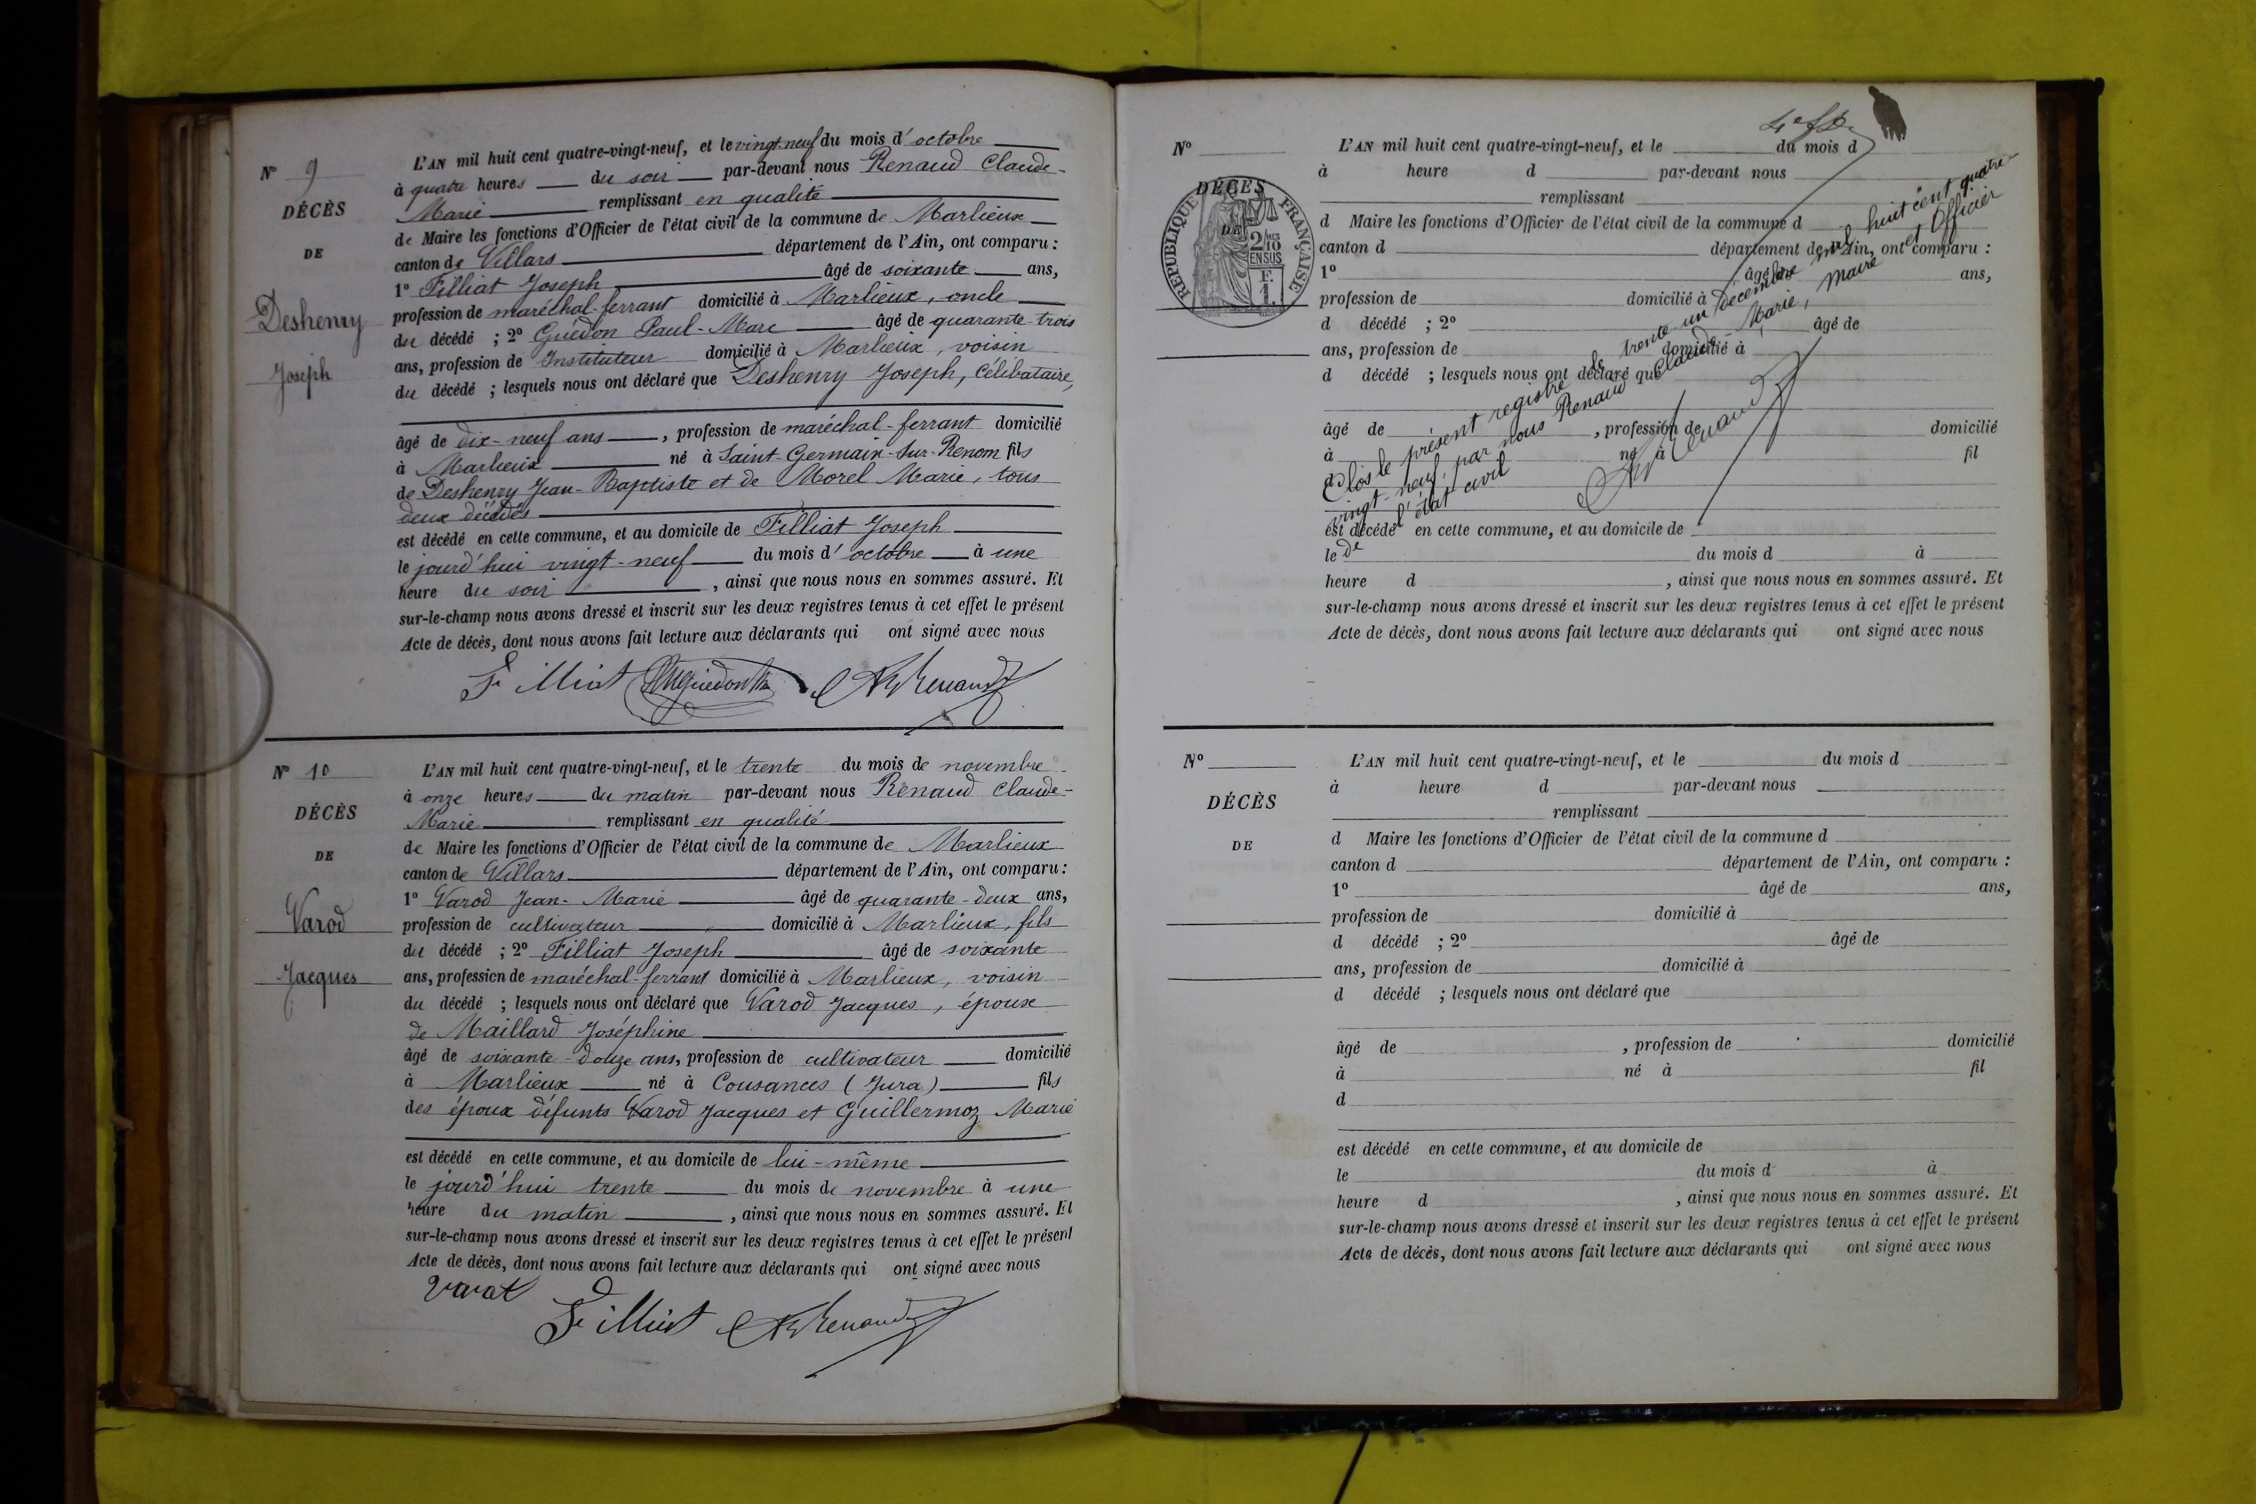 N° 9
DÉCÈS
DE
Deshenry
Joseph
L'AN mil huit cent quatre-vingt-neuf, et le vingt-neuf du mois d'octobre
à quatre heures du soir par-devant nous Renaud Claude-
Marie remplissant en qualité
de Maire les fonctions d'Officier de l'état civil de la commune de Marlieux
canton de Villars département de l'Ain, ont comparu :
1° Filliat Joseph âgé de soixante ans,
profession de maréchal-ferrant domicilié à Marlieux, oncle
du décédé ; 2° Guédon Paul-Marc âgé de quarante-trois
ans, profession de Instituteur domicilié à Marlieux, voisin
du décédé ; lesquels nous ont déclaré que Deshenry Joseph, célibataire,
âgé de dix-neuf ans, profession de maréchal-ferrant domicilié
à Marlieux né à Saint-Germain-sur-Renom fils
de Deshenry Jean-Baptiste et de Morel Marie, tous
deux décédés
est décédé en cette commune, et au domicile de Filliat Joseph
le jourd'hui vingt-neuf du mois d'octobre à une
heure du soir, ainsi que nous nous en sommes assuré. Et
sur-le-champ nous avons dressé et inscrit sur les deux registres tenus à cet effet le présent
Acte de décès, dont nous avons fait lecture aux déclarants qui ont signé avec nous
Filliat PMGuedon Renaud
N° 10
DÉCÈS
DE
Varod
Jacques
L'AN mil huit cent quatre-vingt-neuf, et le trente du mois de novembre
à onze heures du matin par-devant nous Renaud Claude-
Marie remplissant en qualité
de Maire les fonctions d'Officier de l'état civil de la commune de Marlieux
canton de Villars département de l'Ain, ont comparu :
1° Varod Jean-Marie âgé de quarante-deux ans,
profession de cultivateur domicilié à Marlieux, fils
du décédé ; 2° Filliat Joseph âgé de soixante
ans, profession de maréchal-ferrant domicilié à Marlieux, voisin
du décédé ; lesquels nous ont déclaré que Varod Jacques, époux
de Maillard Joséphine
âgé de soixante-douze ans, profession de cultivateur domicilié
à Marlieux né à Cousances (Jura) fils
des époux défunts Varod Jacques et Guillermoz Marie
est décédé en cette commune, et au domicile de lui-même
le jourd'hui trente du mois de novembre à une
heure du matin, ainsi que nous nous en sommes assuré. Et
sur-le-champ nous avons dressé et inscrit sur les deux registres tenus à cet effet le présent
Acte de décès, dont nous avons fait lecture aux déclarants qui ont signé avec nous
Varot
Filliat Renaud
N°
DÉCÈS
DE
REPUBLIQUE FRANÇAISE
2/10
EN SUS
F.
1.
L'AN mil huit cent quatre-vingt-neuf, et le du mois d
à heure d par-devant nous
remplissant
d Maire les fonctions d'Officier de l'état civil de la commune d
canton d département de l'Ain, ont comparu :
1° âgé de ans,
profession de domicilié à
d décédé ; 2° âgé de
ans, profession de domicilié à
d décédé ; lesquels nous ont déclaré que
âgé de , profession de domicilié
à né à fil
d
est décédé en cette commune, et au domicile de
le du mois d à
heure d , ainsi que nous nous en sommes assuré. Et
sur-le-champ nous avons dressé et inscrit sur les deux registres tenus à cet effet le présent
Acte de décès, dont nous avons fait lecture aux déclarants qui ont signé avec nous
Clos le présent registre le trente-un décembre mil huit cent quatre-
vingt-neuf, par nous Renaud Claude-Marie, Maire et Officier
de l'état civil
Renaud
N°
DÉCÈS
DE
L'AN mil huit cent quatre-vingt-neuf, et le du mois d
à heure d par-devant nous
remplissant
d Maire les fonctions d'Officier de l'état civil de la commune d
canton d département de l'Ain, ont comparu :
1° âgé de ans,
profession de domicilié à
d décédé ; 2° âgé de
ans, profession de domicilié à
d décédé ; lesquels nous ont déclaré que
âgé de , profession de domicilié
à né à fil
d
est décédé en cette commune, et au domicile de
le du mois d à
heure d , ainsi que nous nous en sommes assuré. Et
sur-le-champ nous avons dressé et inscrit sur les deux registres tenus à cet effet le présent
Acte de décès, dont nous avons fait lecture aux déclarants qui ont signé avec nous